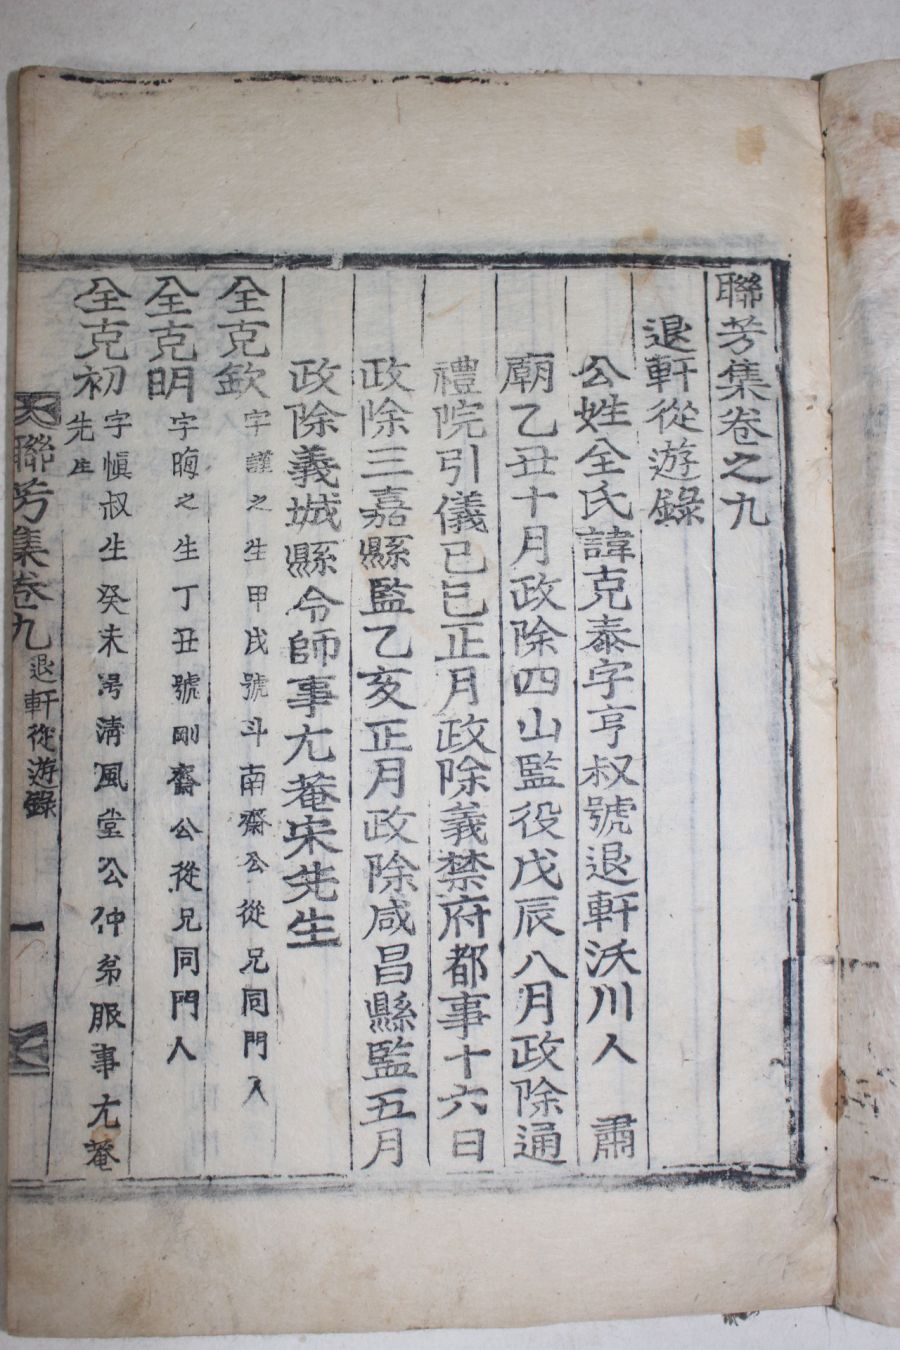 聯芳集卷之九
退軒從遊錄
公姓全氏諱克泰字亨叔號退軒沃川人　肅
廟乙丑十月政除四山監役戊辰八月政除通
禮院引儀己巳正月政除義禁府都事十六日
政除三嘉縣監乙亥正月政除咸昌縣監五月
政除義城縣令師事尤菴宋先生
全克欽字謹之生甲戌號斗南齋公從兄同門人
全克明字晦之生丁丑號剛齋公從兄同門人
全克初字愼叔生癸未号清風堂公仲弟服事尤菴
先生
聯芳集卷九 退軒從遊錄 一